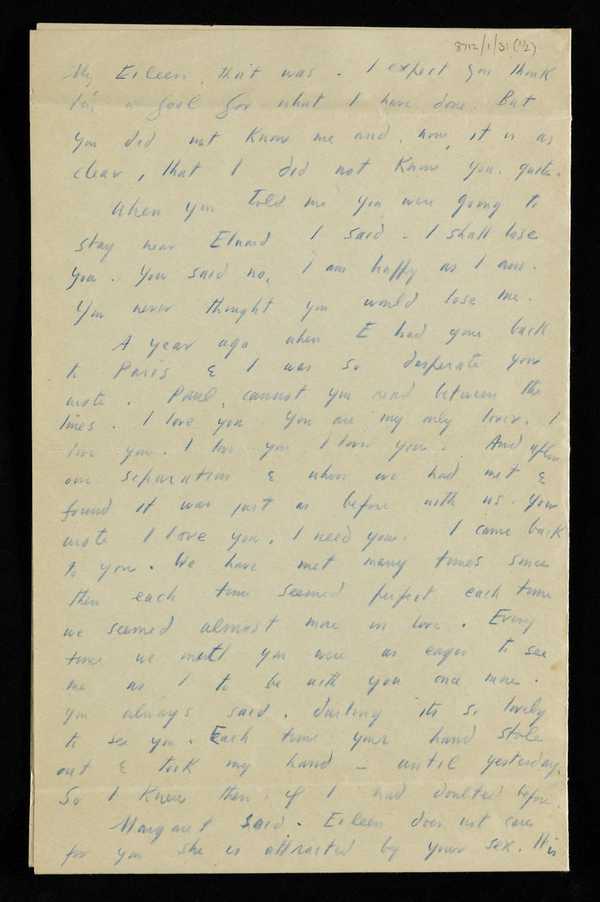 8712/1/31 (1/2)
My Eileen, that was. I expect you think
I'm a fool for what I have done. But
you did not know me and, now, it is as
clear, that I did not know you. quite.
When you told me you were going to
stay near Eluard I said - I shall lose
you. You said no, I am happy as I am.
You never thought you would lose me.
A year ago when E had gone back
to Paris & I was so desperate you
wrote. Paul, cannot you read between the
lines. I love you. You are my only lover. I
love you. I love you I love you. And after
our separation & when we had met &
found it was just as before with us. You
wrote I love you, I need you. I came back
to you. We have met many times since
then each time seemed perfect each time
we seemed almost more in love. Every
time we met you were as eager to see
me as I to be with you once more.
You always said, darling its so lovely
to see you. Each time your hand stole
out & took my hand - until yesterday.
So I knew then, if I had doubted before.
Margaret said. Eileen does not care
for you she is attracted by your sex.